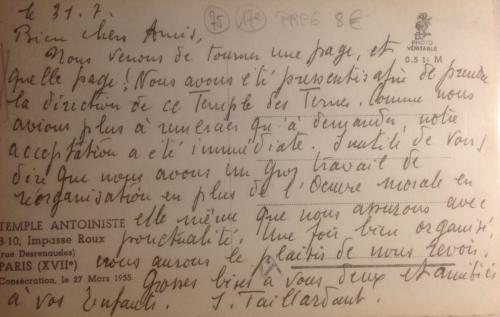 le 31.7.
75 17e PRPG 8€
Bien chers Amis,
Nous venons de tourner une page, et
quelle page! Nous avons été pressentis afin de prendre
la direction de ce Temple des Ternes. Comme nous
avions plus à remercier qu'à demander notre
acceptation a été immédiate. Inutile de vous
dire que nous avons un gros travail de
réorganisation en plus de l'Oeuvre morale en
elle même que nous assurons avec
ponctualité. Une fois bien organisé
nous aurons le plaisir de nous revoir.
Grosses bises à vous deux et amitiés
à vos Enfants. J. Taillardant.
PHOTO
VÉRITABLE
O.S. M
TEMPLE ANTOINISTE
8-10, Impasse Roux
(rue Desrenaudes)
PARIS (XVIIe)
Consécration, le 27 Mars 1955.